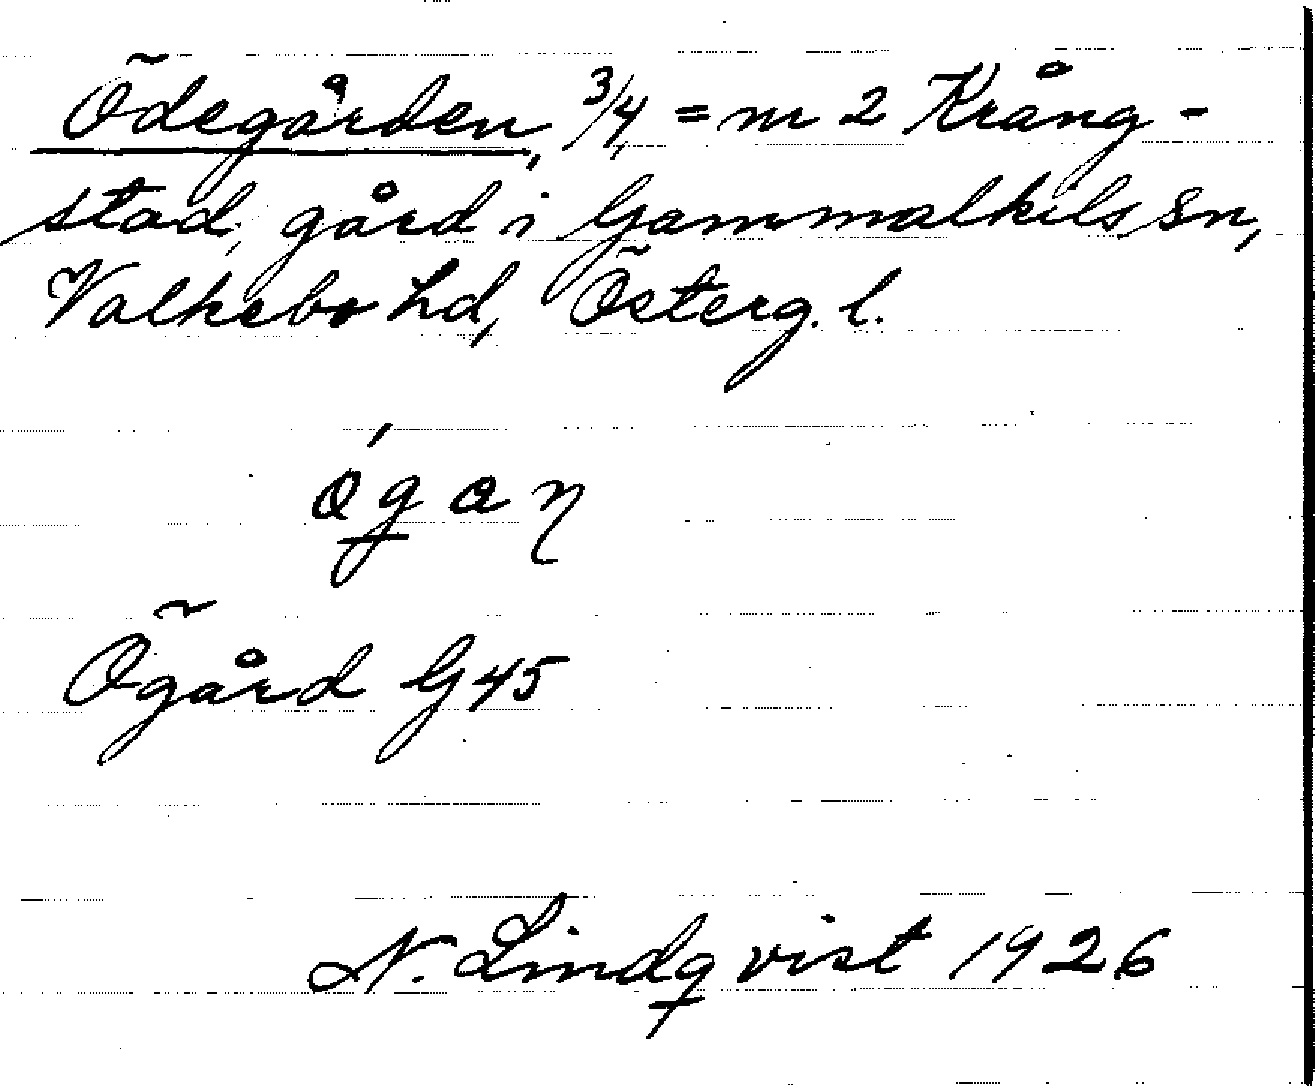 Ödegården, 3/4, = nr 2 Krång-
stad, gård i Gammalkils sn,
Valkebo hd, Österg. l.
ǿgaη
Ögård G45
N. Lindqvist 1926